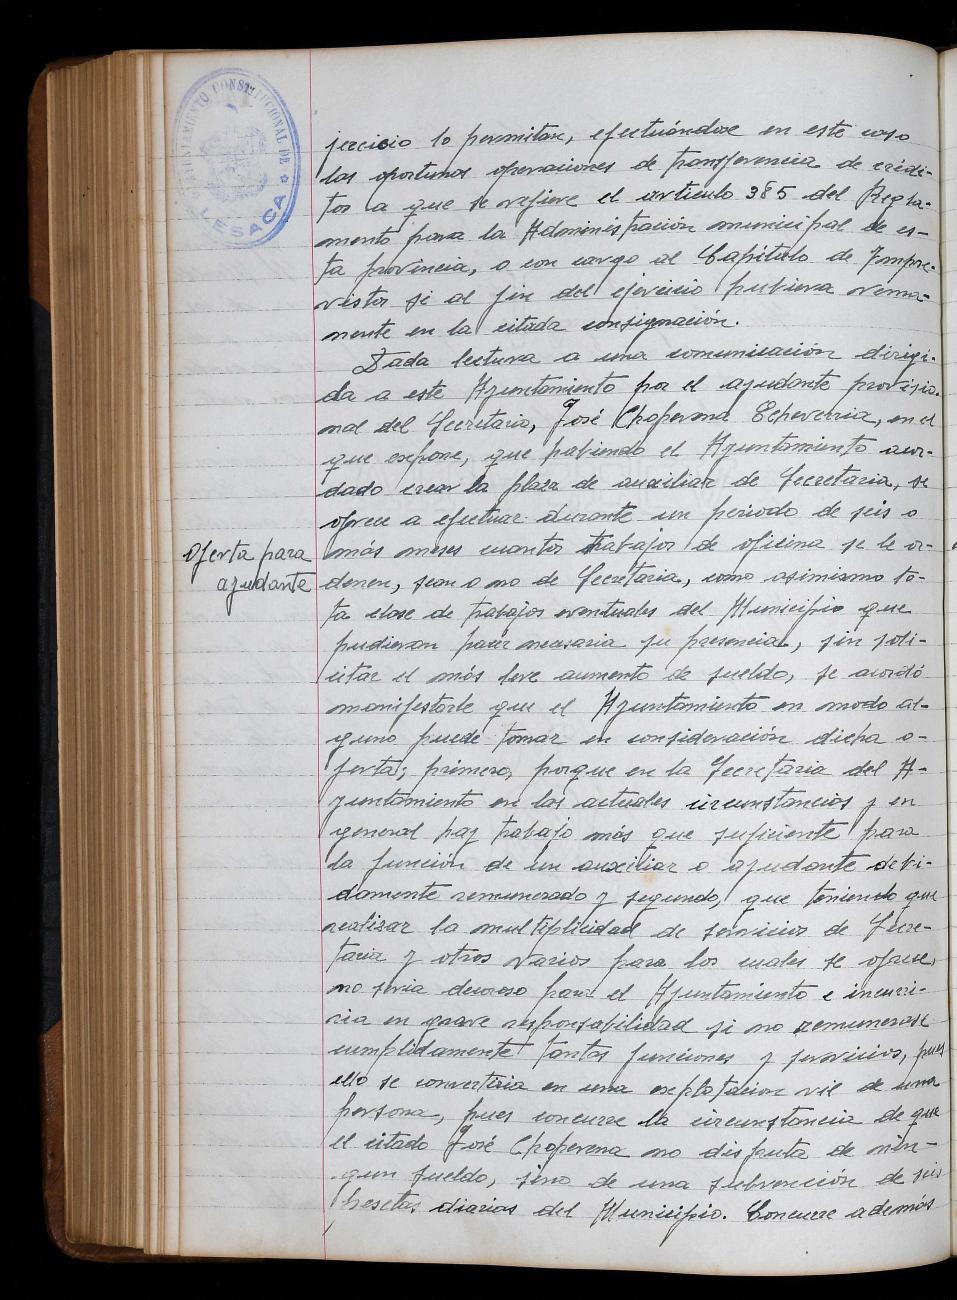 AYUNTAMIENTO CONSTITUCIONAL DE
LESACA
jercicio lo permitan, efectuándose en este caso
las oportunas operaciones de transferencia de crédi-
tos a que se refiere el artículo 385 del Regla-
mento para la Administración municipal de es-
ta provincia, o con cargo al Capítulo de Impre-
vistos si al fin del ejercicio hubiera rema-
nente en la citada consignación.
Dada lectura a una comunicación dirigi-
da a este Ayuntamiento por el ayudante provisio-
nal del Secretario, José Choperena Echeverria, en el
que expone, que habiendo el Ayuntamiento acor-
dado crear la plaza de auxiliar de Secretaria, se
ofrece a efectuar durante un periodo de seis o
Oferta para
ayudante
más meses cuantos trabajos de oficina se le or-
denen, sean o no de Secretaria, como asimismo to-
ta clase de trabajos eventuales del Municipio que
pudieran hacer necesaria su presencia, sin soli-
citar el más leve aumento de sueldo, se acordó
manifestarle que el Ayuntamiento en modo al-
guno puede tomar en consideración dicha o-
ferta; primero, porque en la Secretaria del A-
yuntamiento en las actuales circunstancias y en
general hay trabajo más que suficiente para
la función de un auxiliar o ayudante debi-
damente remunerado y segundo, que teniendo que
realizar la multiplicidad de servicios de Secre-
taria y otros varios para los cuales se ofrece,
no seria decoroso para el Ayuntamiento e incurri-
ria en grave responsabilidad si no remunerase
cumplidamente tantas funciones y servicios, pues
ello se convertiria en una explotacion vil de una
persona, pues concurre la circunstancia de que
el citado José Choperena no disfruta de nin-
gun sueldo, sino de una subvención de seis
pesetas diarias del Municipio. Concurre además